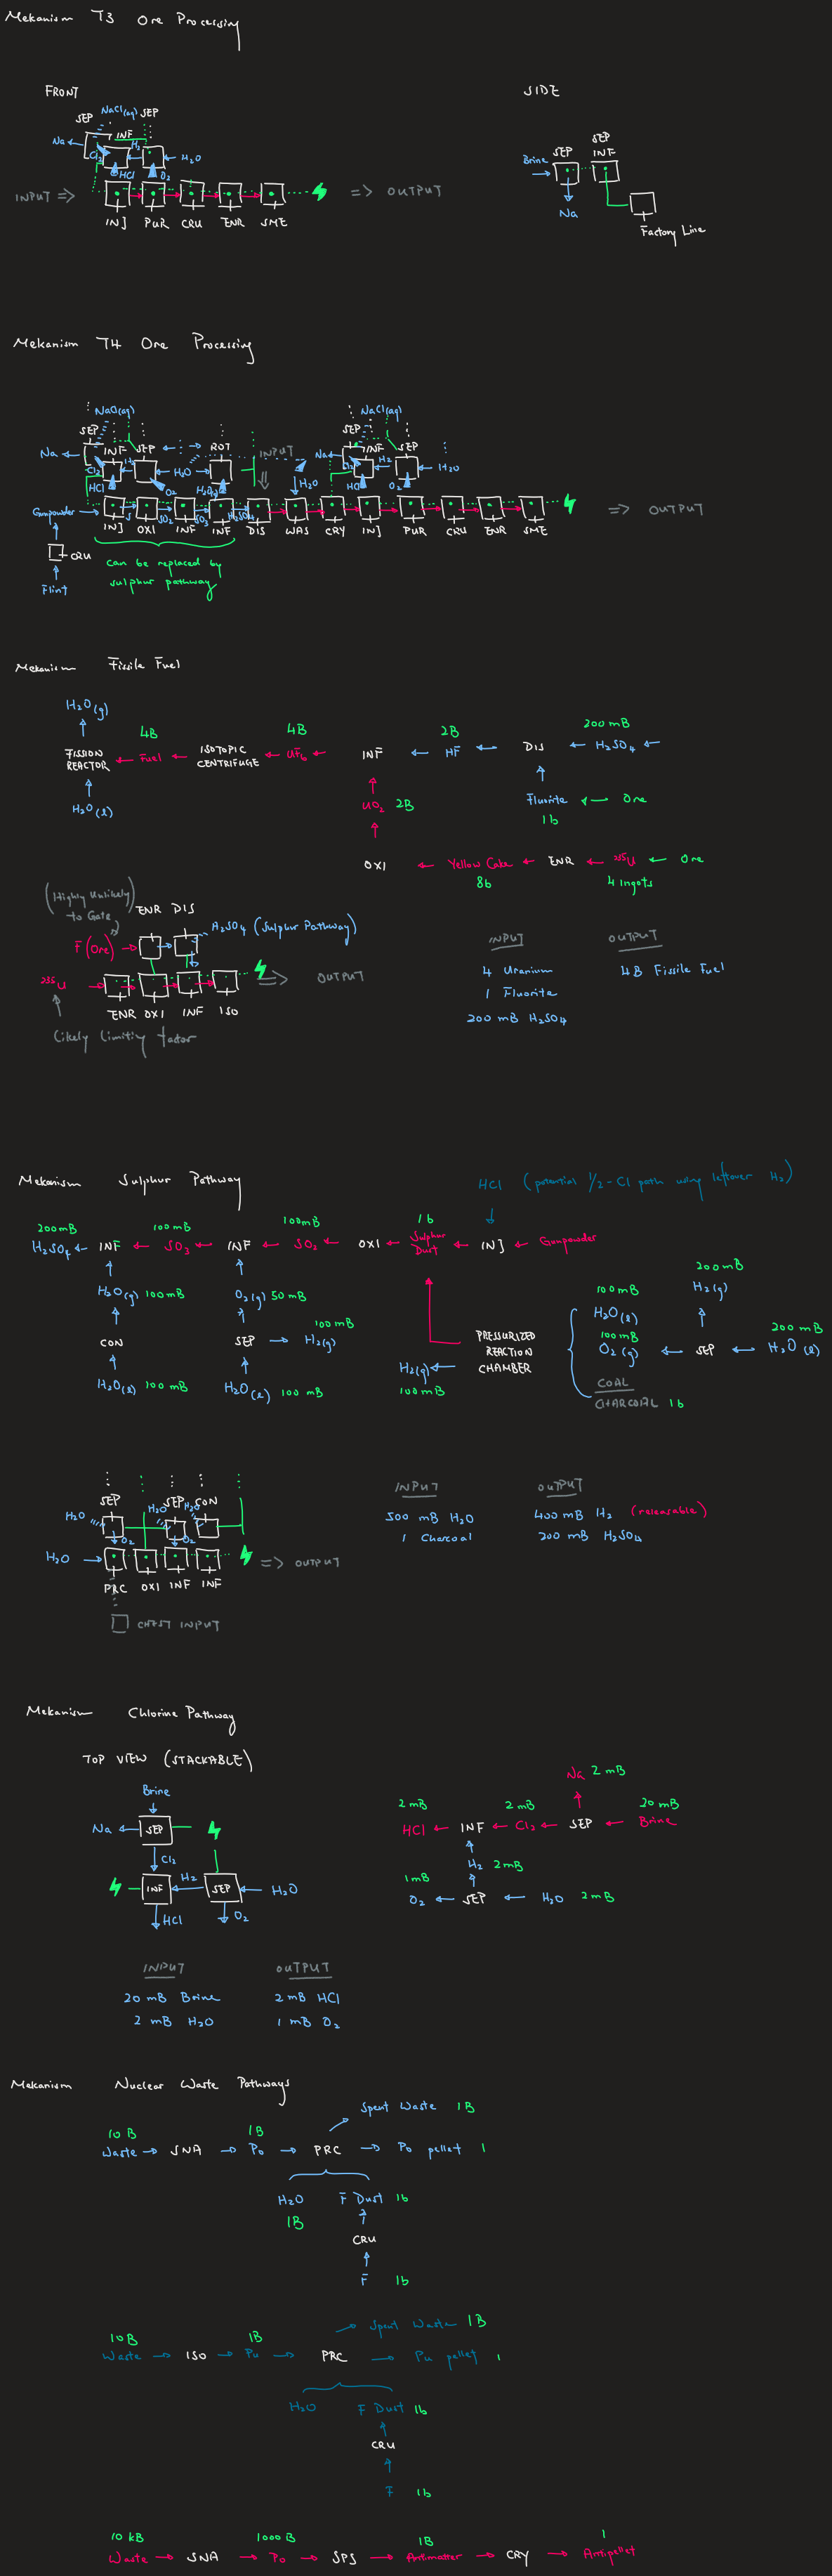 Mekanism T3 Ore Processing
FRONT
SIDE
SEP NaCl(aq) SEP
Na INF H₂ H₂O
Cl₂ HCl O₂
INPUT => => OUTPUT
INJ PUR CRU ENR SME
SEP SEP
INF
Brine
Na
Factory Line
Mekanism T4 Ore Processing
NaCl(aq) NaCl(aq)
SEP INF SEP ROT INPUT SEP INF SEP
Na Cl₂ H₂ H₂O H₂O Na Cl₂ H₂ H₂O
HCl O₂ H₂O(g) HCl O₂
Gunpowder S SO₂ SO₃ H₂SO₄ => OUTPUT
INJ OXI INF INF DIS WAS CRY INJ PUR CRU ENR SME
CRU
Flint
can be replaced by
sulphur pathway
Mekanism Fissile Fuel
H₂O(g)
4B 4B 2B 200 mB
FISSION REACTOR ← Fuel ← ISOTOPIC CENTRIFUGE ← UF₆ ← INF ← HF ← DIS ← H₂SO₄ ←
H₂O(l)
UO₂ 2B
Fluorite ← Ore
1b
OXI ← Yellow Cake ← ENR ← ²³⁵U ← Ore
8b 4 ingots
(Highly Unlikely to Gate)
ENR DIS
H₂SO₄ (Sulphur Pathway)
F(Ore)
²³⁵U => OUTPUT
ENR OXI INF ISO
Likely limiting factor
INPUT OUTPUT
4 Uranium 4B Fissile Fuel
1 Fluorite
200 mB H₂SO₄
Mekanism Sulphur Pathway
HCl (potential 1/2-Cl path using leftover H₂)
200mB 100mB 100mB 1b
H₂SO₄ ← INF ← SO₃ ← INF ← SO₂ ← OXI ← Sulphur Dust ← INJ ← Gunpowder
H₂O(g) 100mB O₂(g) 50 mB
CON SEP → H₂(g) 100mB
H₂O(l) 100 mB H₂O(l) 100 mB
PRESSURIZED
REACTION
CHAMBER
H₂(g)
100mB
200mB
H₂(g)
100mB
H₂O(l)
100mB 200 mB
O₂(g) ← SEP ← H₂O (l)
COAL
CHARCOAL 1b
SEP SEP CON
H₂O H₂O H₂O
O₂ O₂
H₂O => OUTPUT
PRC OXI INF INF
CHEST INPUT
INPUT OUTPUT
500 mB H₂O 400 mB H₂ (releasable)
1 Charcoal 200 mB H₂SO₄
Mekanism Chlorine Pathway
TOP VIEW (STACKABLE)
Brine
Na ← SEP
Cl₂
INF H₂ SEP H₂O
HCl O₂
Na 2 mB
2 mB 2 mB 20mB
HCl ← INF ← Cl₂ ← SEP ← Brine
H₂ 2mB
1mB
O₂ ← SEP ← H₂O 2mB
INPUT OUTPUT
20 mB Brine 2 mB HCl
2 mB H₂O 1 mB O₂
Mekanism Nuclear Waste Pathways
Spent Waste 1B
10 B 1B
Waste → SNA → Po → PRC → Po pellet 1
H₂O F Dust 1b
1B
CRU
F 1b
Spent Waste 1B
10B 1B
Waste → ISO → Pu → PRC → Pu pellet 1
H₂O F Dust 1b
CRU
F 1b
10 kB 1000 B 1B 1
Waste → SNA → Po → SPS → Antimatter → CRY → Antipellet